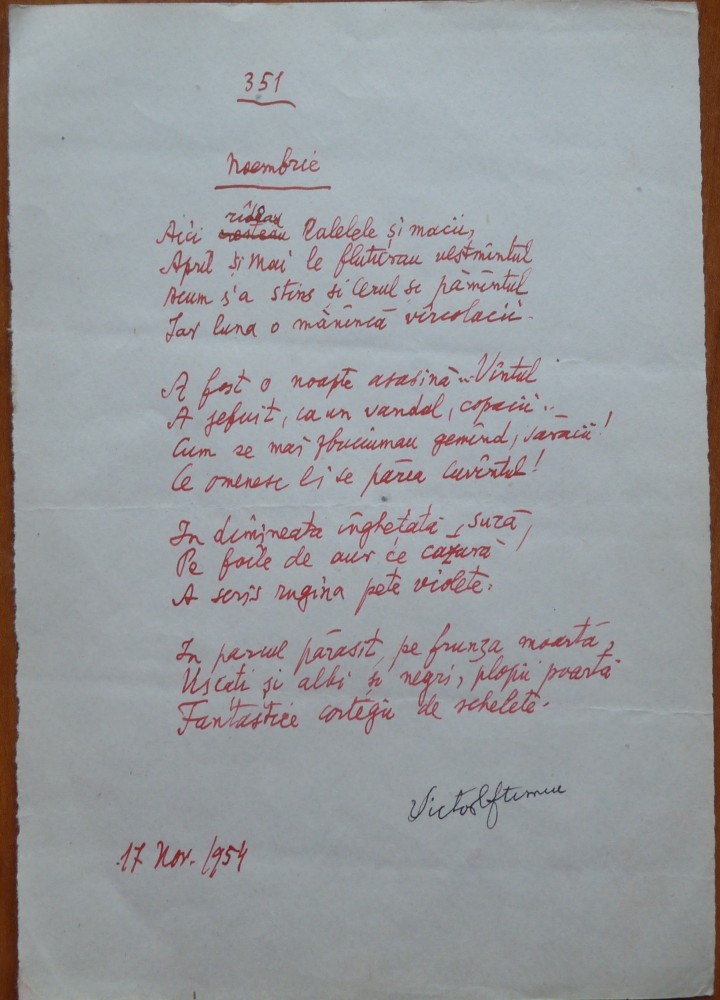 351
Noembrie
rîdeau
Aici creșteau lalelele și macii,
April și Mai le fluturau vestmîntul
Acum s'a stins și Cerul și pămîntul
Iar luna o mănîncă vîrcolacii.
A fost o noapte asasină... Vîntul
A jefuit, ca un vandal, copacii...
Cum se mai zbuciumau gemînd, săracii!
Ce omenesc li se părea cuvîntul!
In dimineața înghețată, sură,
Pe foile de aur ce căzură
A scris rugina pete violete.
In parcul părăsit, pe frunza moartă,
Uscați și albi și negri, plopii poartă
Fantastice cortegii de schelete.
Victor Eftimiu
17 Nov. 1954